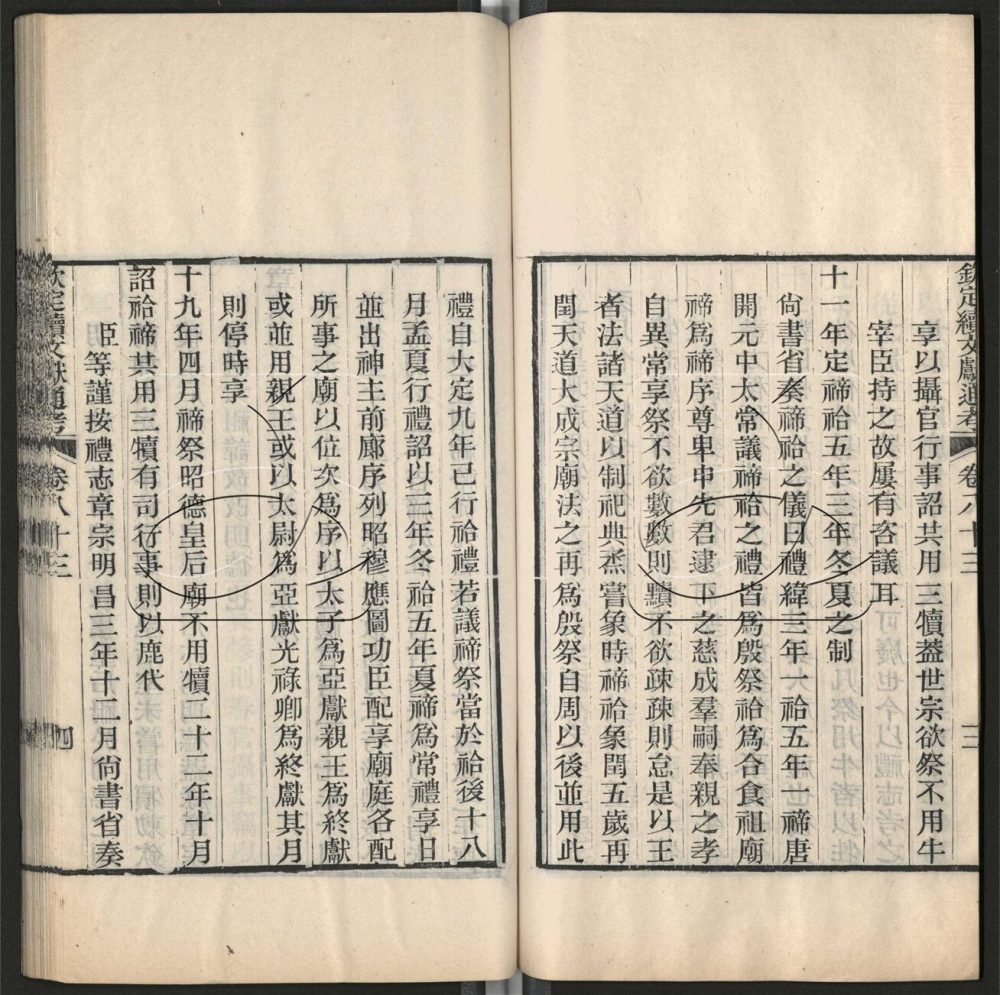 欽定續文獻通考 卷八十三 三
享以攝官行事詔共用三犢蓋世宗欲祭不用牛
宰臣持之故屢有咨議耳
十一年定禘祫五年三年冬夏之制
尚書省奏禘祫之儀曰禮緯三年一祫五年一禘唐
開元中太常議禘祫之禮皆為殷祭祫為合食祖廟
禘為禘序尊卑申先君逮下之慈成羣嗣奉親之孝
自異常享祭不欲數數則黷不欲疎疎則怠是以王
者法諸天道以制祀典烝嘗象時禘祫象閏五歲再
閏天道大成宗廟法之再為殷祭自周以後並用此
禮自大定九年已行祫禮若議禘祭當於祫後十八
月孟夏行禮詔以三年冬祫五年夏禘為常禮享日
並出神主前廊序列昭穆應圖功臣配享廟庭各配
所事之廟以位次為序以太子為亞獻親王為終獻
或並用親王或以太尉為亞獻光祿卿為終獻其月
則停時享
十九年四月禘祭昭德皇后廟不用犢二十二年十月
詔祫禘共用三犢有司行事則以鹿代
臣等謹按禮志章宗明昌三年十二月尚書省奏
欽定續文獻通考 卷八十三 四